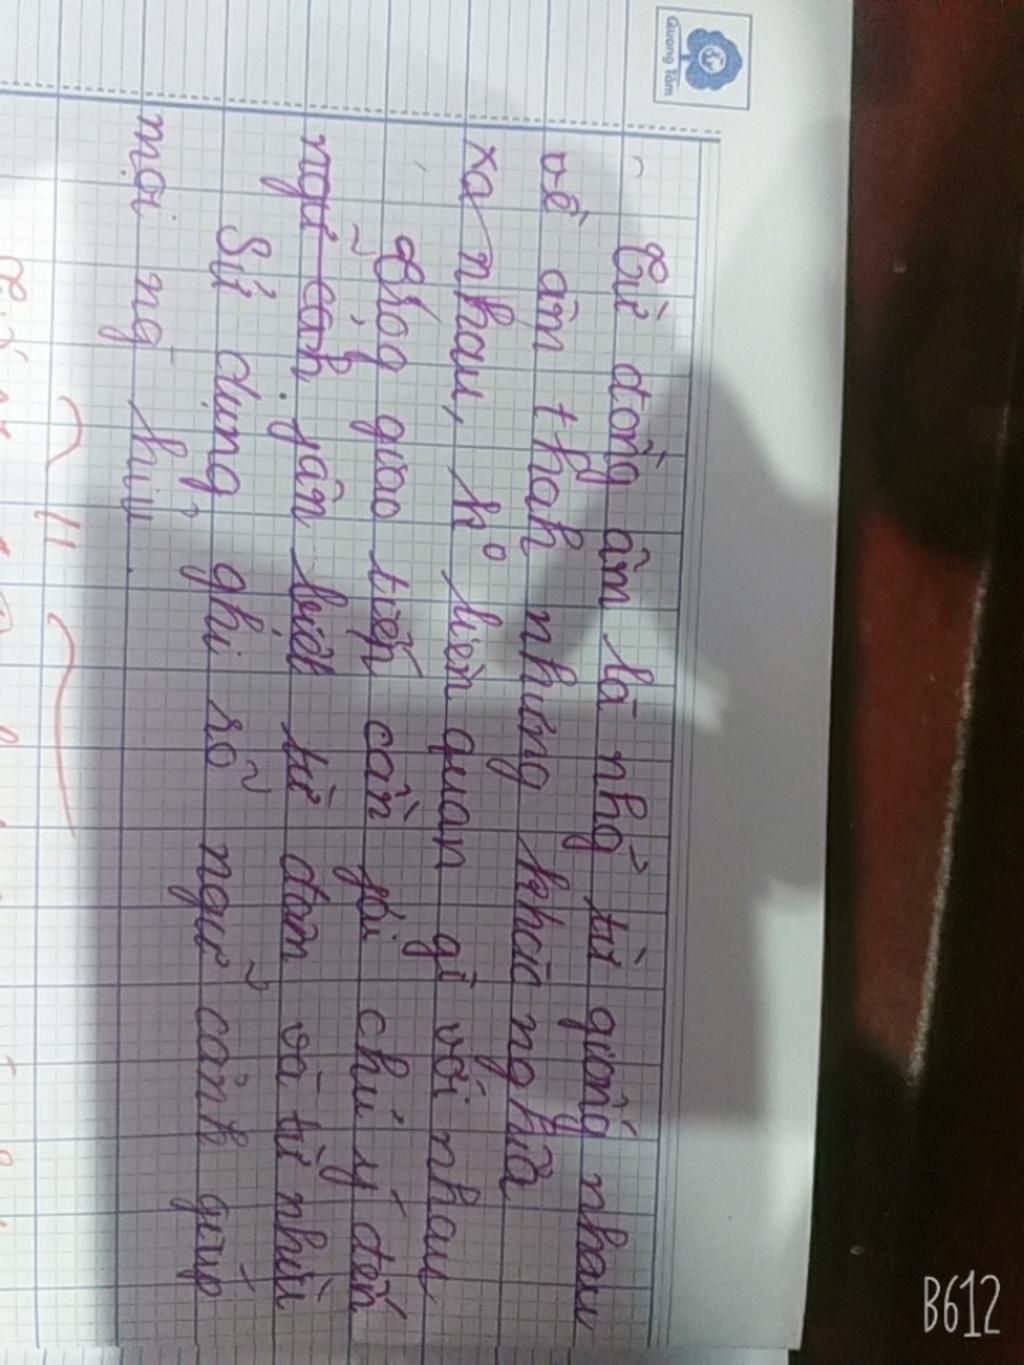 Quang Tâm
Từ đồng âm là nhg~ từ giống nhau
về âm thah nhưng khác nghĩa
xa nhau, k° liên quan gì với nhau
Trog giao tiếp cần fải chú ý đến
ngữ cảh. fân biệt từ đâm và từ nhiều
Sử dụng, ghi rõ ngữ cảnh giúp
mọi ng` hiu.
B612